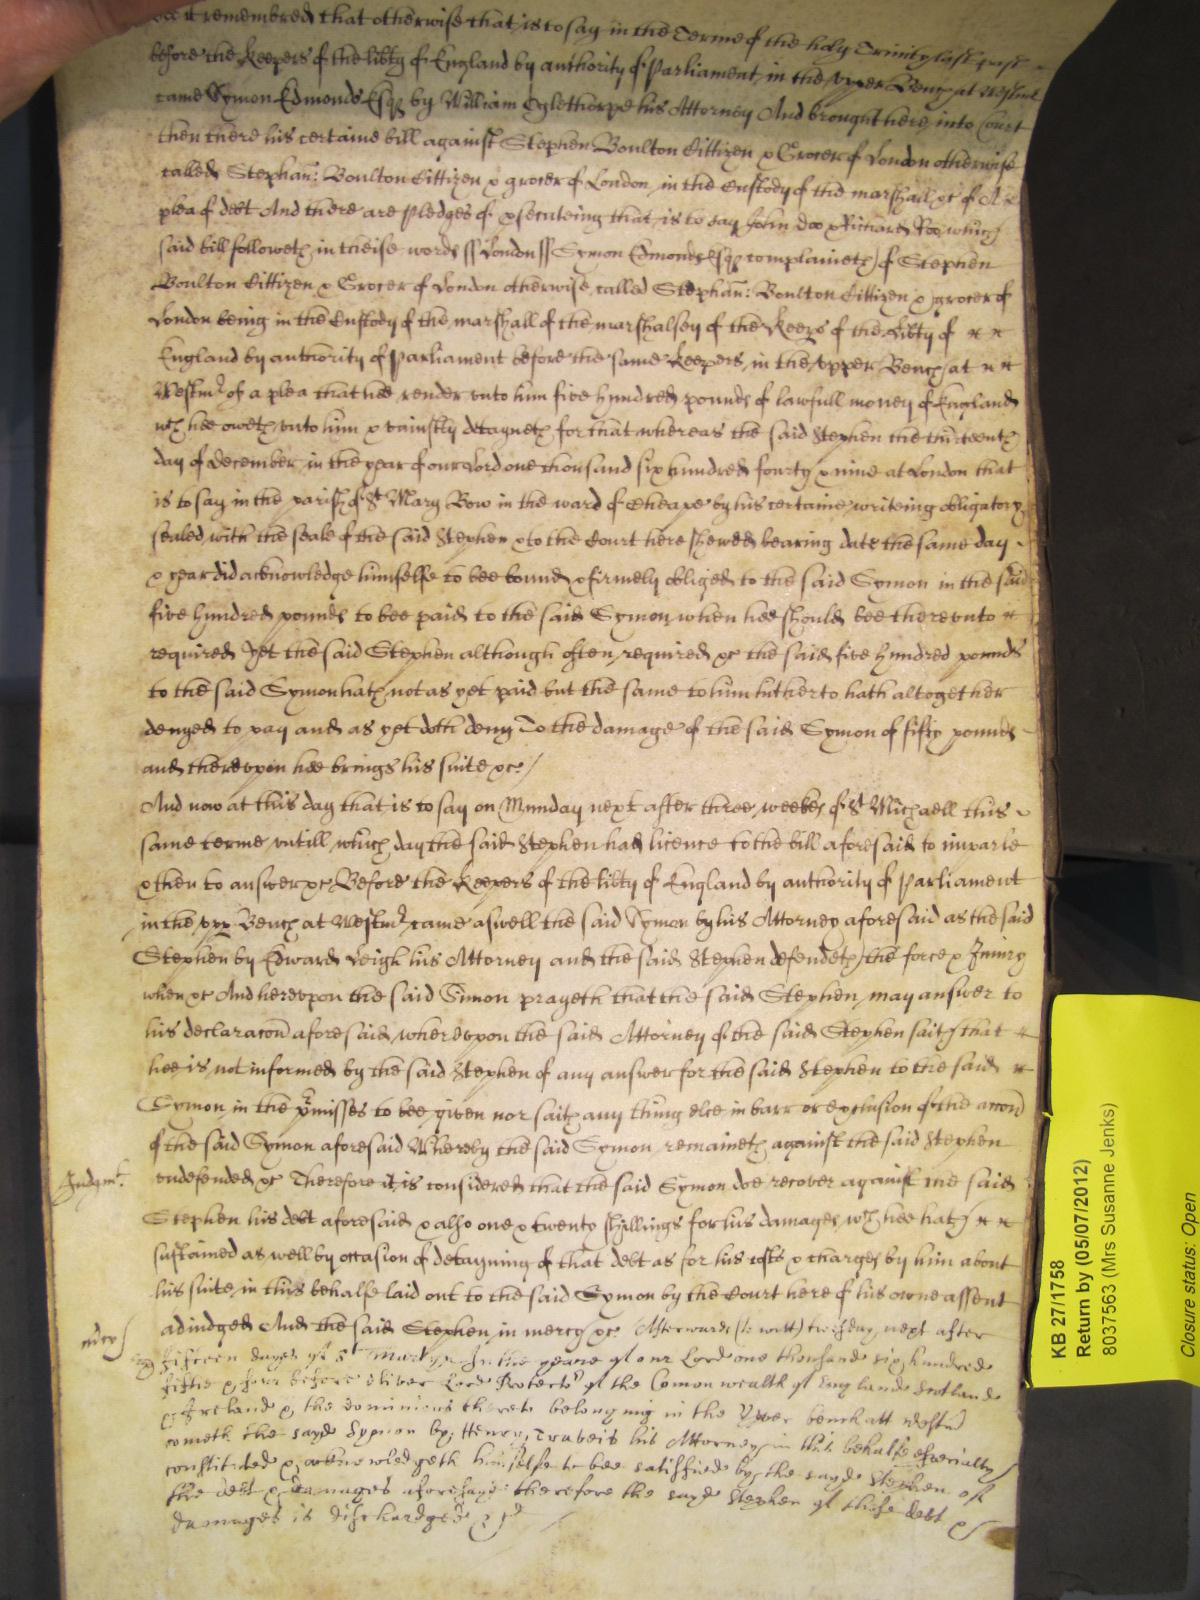 bee it remembred that otherwise that is to say in the Terme of the holy Trinity last past
before the Keepers of the lib̃ty of England by authority of Parliament in the vpper Bench at Westm̃
came Symon Edmonds Esq̃ by William Oglethorpe his Attorney And brought here into Court
then there his certaine bill against Stephen Boulton Cittizen & Grocer of London otherwise
called Stephan: Boulton Cittizen & grocer of London in the Custody of the marshall &c of A
plea of debt And there are pledges of ꝓsecuteing that is to say John Doo & Richard Roo which
said bill followeth in theise words ss London ss Symon Edmonds Esq̃ complaineth of Stephen
Boulton Cittizen & Grocer of London otherwise called Stephan: Boulton Cittizen & grocer of
London being in the Custody of the marshall of the marshalsey of the Keeps of the Lib̃ty of
England by authority of Parliament before the same Keepers in the vpper Bench at
Westmr̃ of a plea that hee render vnto him five hundred pounds of lawfull money of England
wch hee oweth vnto him & vniustly detayneth for that whereas the said Stephen the thirteenth
day of December in the year of our Lord one thousand six hundred fourty & nine at London that
is to say in the parish of St Mary Bow in the ward of Cheape by his certaine writeing obligatory
sealed with the seale of the said Stephen & to the Court here shewed bearing date the same day
& year did acknowledge himselfe to bee bound & firmely obliged to the said Symon in the said
five hundred pounds to bee paid to the said Symon when hee should bee therevnto
required Yet the said Stephen although often required &c the said five hundred pounds
to the said Symon hath not as yet paid but the same to him hitherto hath altogether
denyed to pay and as yet doth deny To the damage of the said Symon of fifty pounds
and therevpon hee brings his suite &c /
And now at this day that is to say on Munday next after three weekes of St Michaell this
same terme vntill which day the said Stephen had licence to the bill aforesaid to imparle
& then to answer &c Before the Keepers of the lib̃ty of England by authority of Parliament
in the vpp Bench at Westmr̃ came aswell the said Symon by his Attorney aforesaid as the said
Stephen by Edward Leigh his Attorney and the said Stephen defendeth the force & Iniury
when &c And herevpon the said Simon prayeth that the said Stephen may answer to
his declaracoñ aforesaid wherevpon the said Attorney of the said Stephen saith that
hee is not informed by the said Stephen of any answer for the said Stephen to the said
Symon in the p̃misses to bee given nor saith any thing else in barr or exclusion of the accoñ
of the said Symon aforesaid Whereby the said Symon remaineth against the said Stephen
Judgmt.
vndefended &c Therefore it is considered that the said Symon doe recover against the said
Stephen his debt aforesaid & also one & twenty shillings for his damages wch hee hath
sustained as well by occasion of detayning of that debt as for his costs & charges by him about
his suite in this behalfe laid out to the said Symon by the Court here of his owne assent
mercy
adiudged And the said Stephen in mercy &c Afterwards (to witt) tuesday next after
fifteen dayes of St Martyn In the yeare of our Lord one thousand six hundred
fiftie & four before Oliver Lord Protector of the Comon wealth of England Scotland
& Ireland & the dominions thereto belonging in the Vpper bench att Westm̃
cometh the sayd Symon by Henry Travers his Attorney in this behalfe especially
constituted & acknowledgeth himselfe to bee satisfied by the sayd Stephen of
the debt & damages aforesayd therefore the sayd Stephen of those debt &
damages is dischardged &c
KB 27/1758
Return by (05/07/2012)
8037563 (Mrs Susanne Jenks)
Closure status: Open